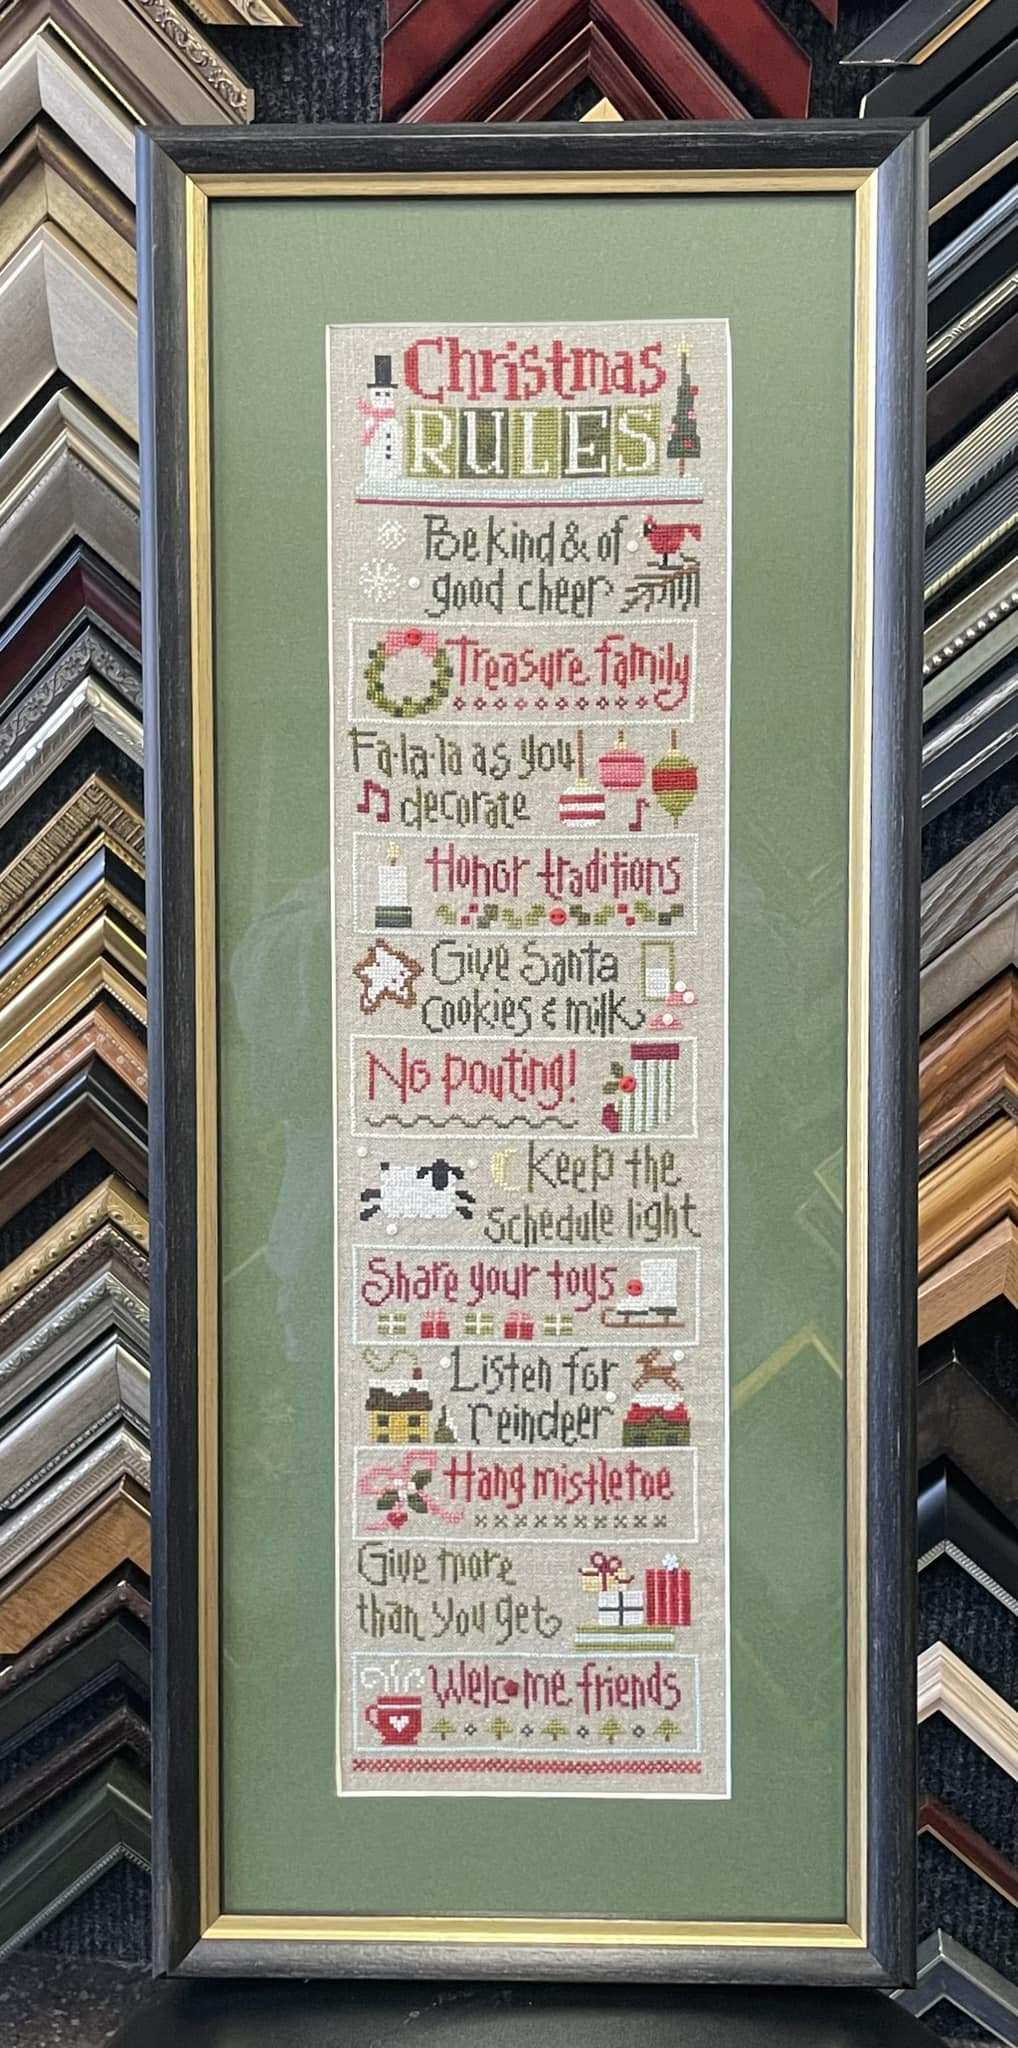 Christmas
RULES
Be kind & of
good cheer
Treasure family
Fa·la·la as you
decorate
Honor traditions
Give Santa
cookies & milk
No pouting!
Keep the
schedule light
Share your toys
Listen for
reindeer
Hang mistletoe
Give more
than you get
Welcome friends